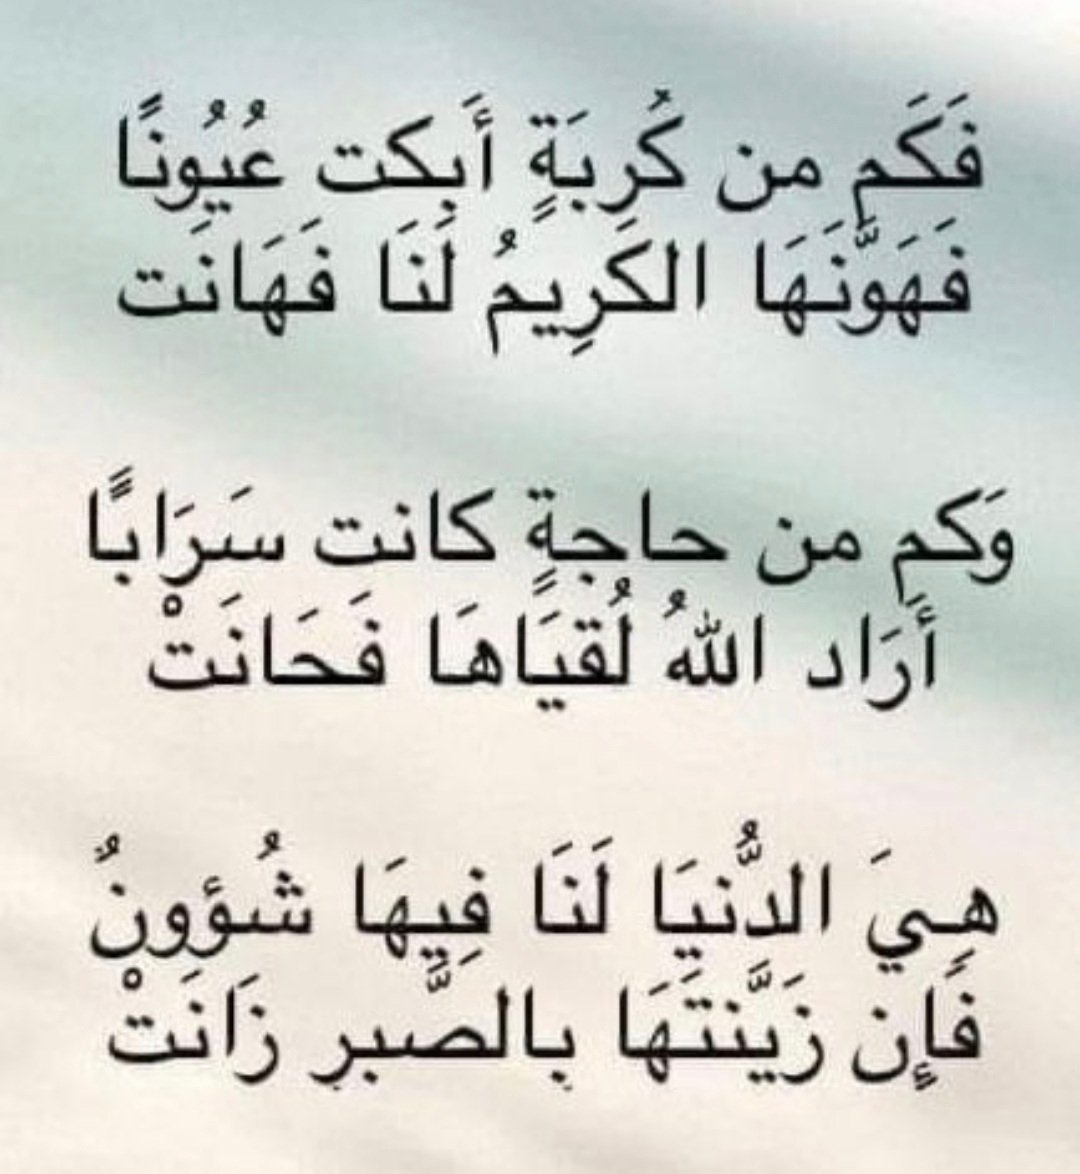 فَكَم من كُربَةٍ أَبكت عُيُونًا
فَهَوَّنَهَا الكَرِيمُ لَنَا فَهَانَت
وَكم من حاجةٍ كانت سَرَابًا
أَرَاد اللهُ لُقيَاهَا فَحَانَتْ
هِيَ الدُّنيَا لَنَا فِيهَا شُؤونٌ
فَإِن زَيَّنتَهَا بالصَّبرِ زَانَتْ